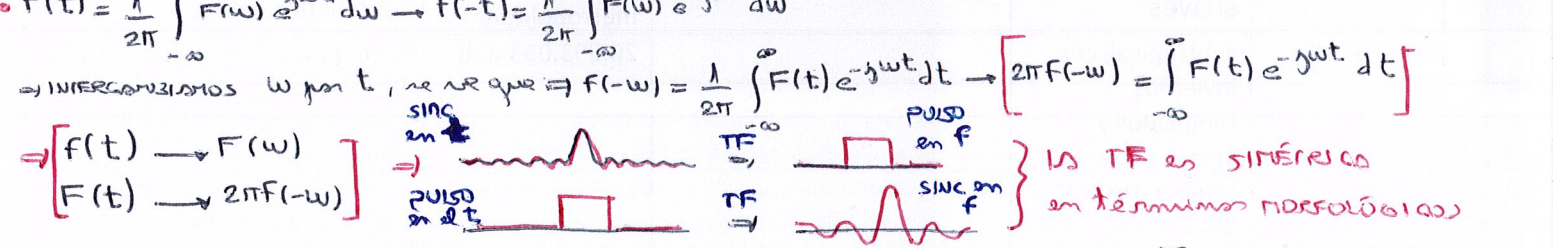 f(t) = 1/2π ∫_{-∞} F(w) e^{j} dw → f(-t) = 1/2π ∫_{-∞} F(w) e^{j} dw
⇒ INTERCAMBIAMOS w por t, se ve que ⇒ f(-w) = 1/2π ∫_{-∞}^{∞} F(t) e^{-jwt} dt → [2πf(-w) = ∫_{-∞}^{∞} F(t) e^{-jwt} dt]
⇒ [f(t) → F(w)
F(t) → 2πf(-w)]
⇒ sinc en t
TF ⇒
PULSO en f
PULSO en el t
TF ⇒
SINC en f
} la TF es SIMÉTRICA
en términos MORFOLÓGICOS